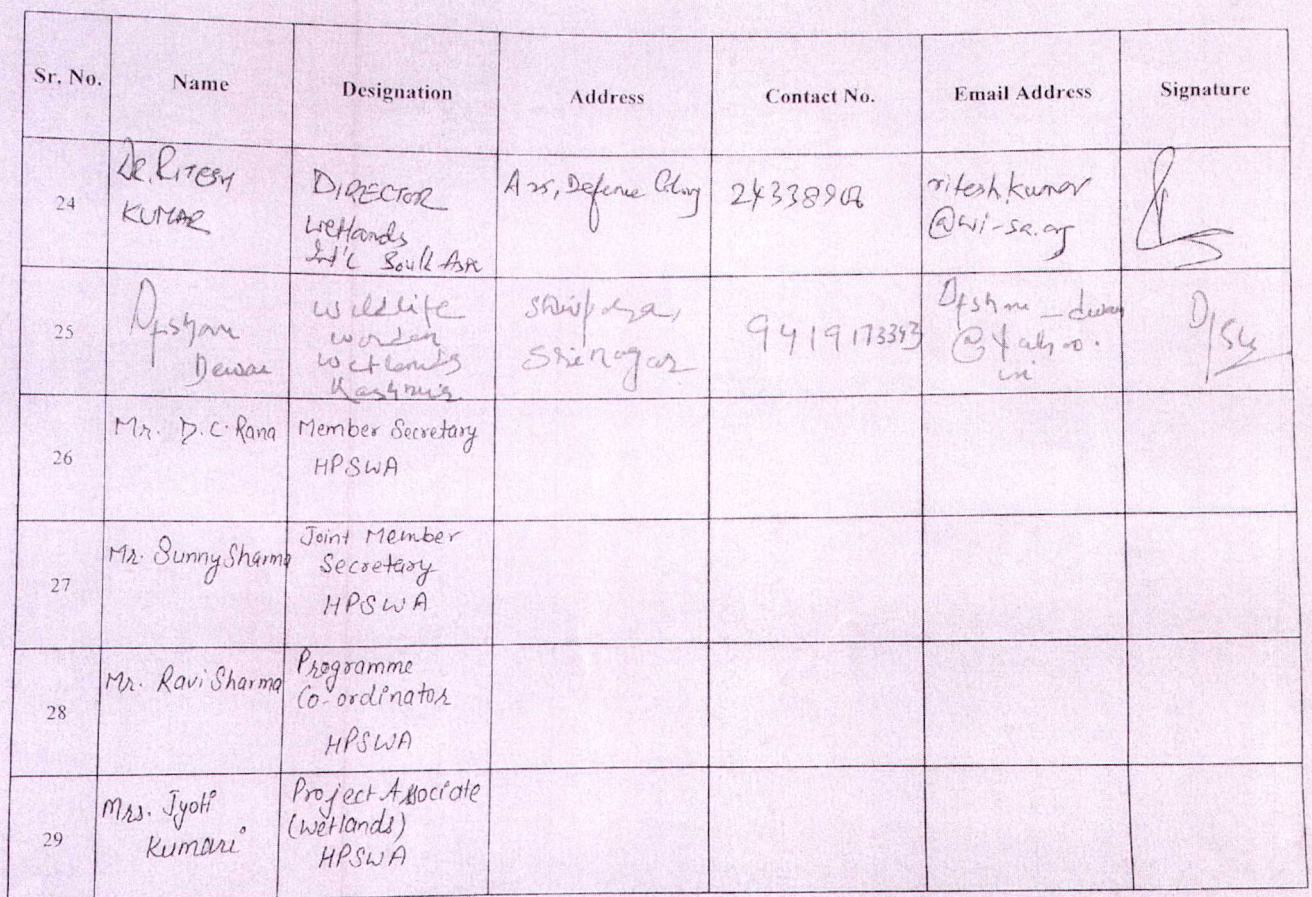 Sr. No. Name Designation Address Contact No. Email Address Signature
24
Dr. RITESH
KUMAR
DIRECTOR
Wetlands
Int'l South Asia
Defence
24338906
ritesh.kumar
@wi-sa.org
25
Dewan
Wildlife
Warden
Wetlands
Kashmir
Srinagar
9419173343
@yahoo.
in
26
Mr. D.C. Rana
Member Secretary
HPSWA
27
Mr. Sunny Sharma
Joint Member
Secretary
HPSWA
28
Mr. Ravi Sharma
Programme
Co-ordinator
HPSWA
29
Mrs. Jyoti
Kumari
Project Associate
(Wetlands)
HPSWA